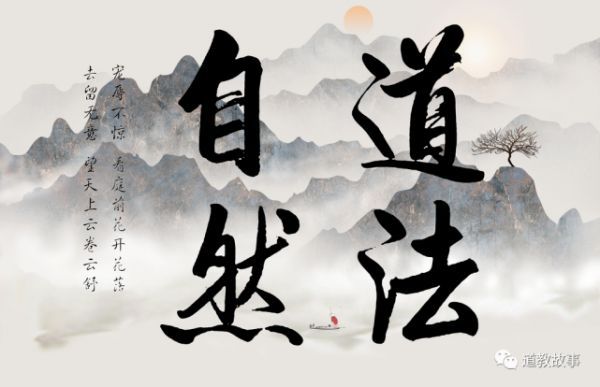 道法
自然
宠辱不惊 看庭前花开花落
去留无意 望天上云卷云舒
道教故事